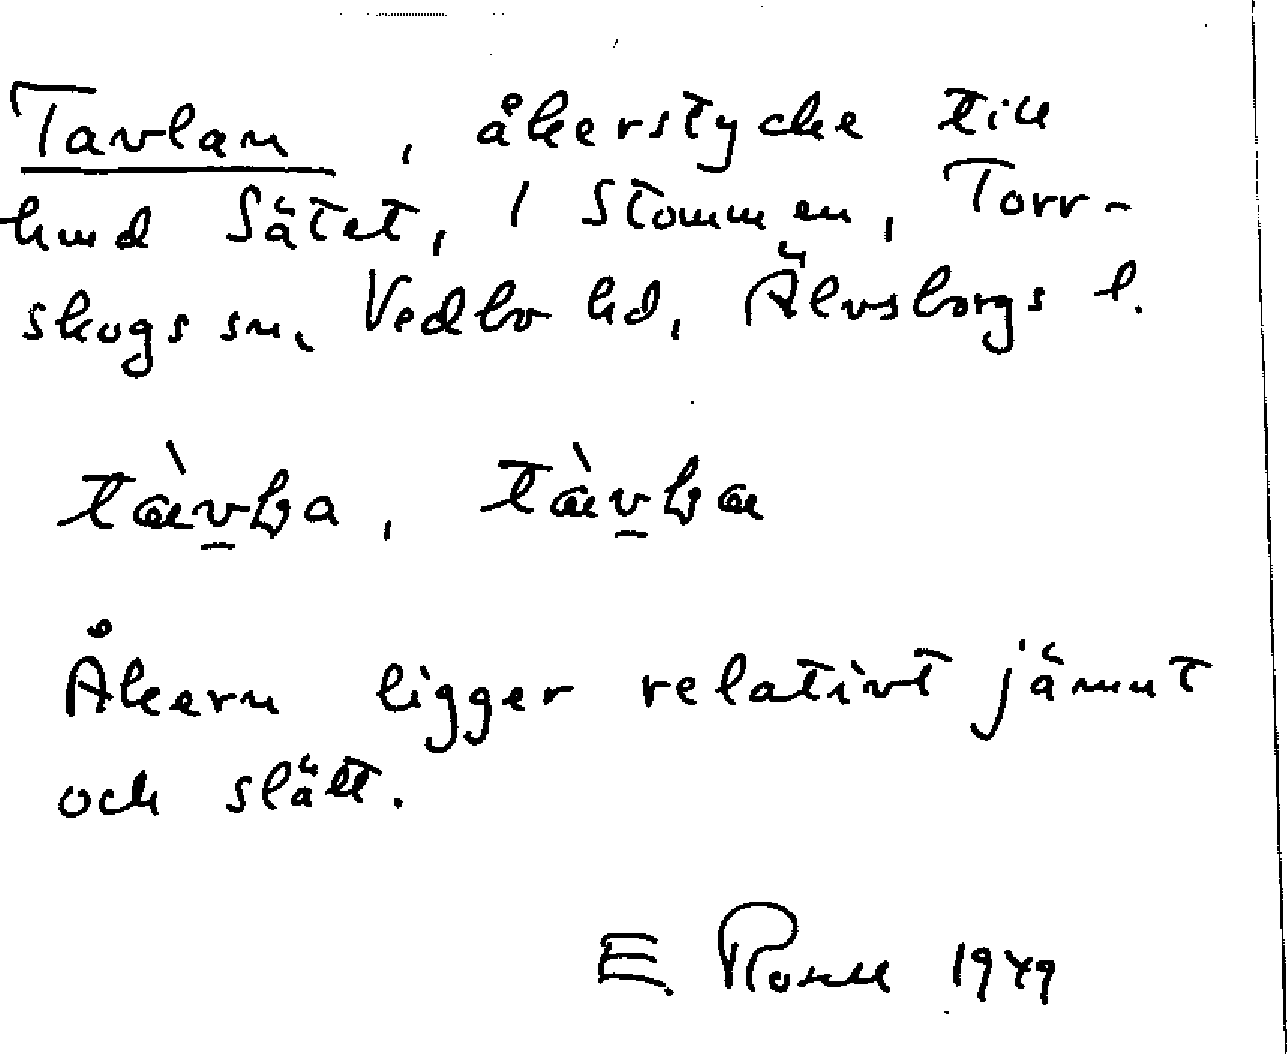 Tavlan, åkerstycke till
hmd Sätet, 1 Stommen, Torr-
skogs sn, Vedbo hd, Älvsborgs l.
Åkern ligger relativt jämnt
och slätt.
E. 1949